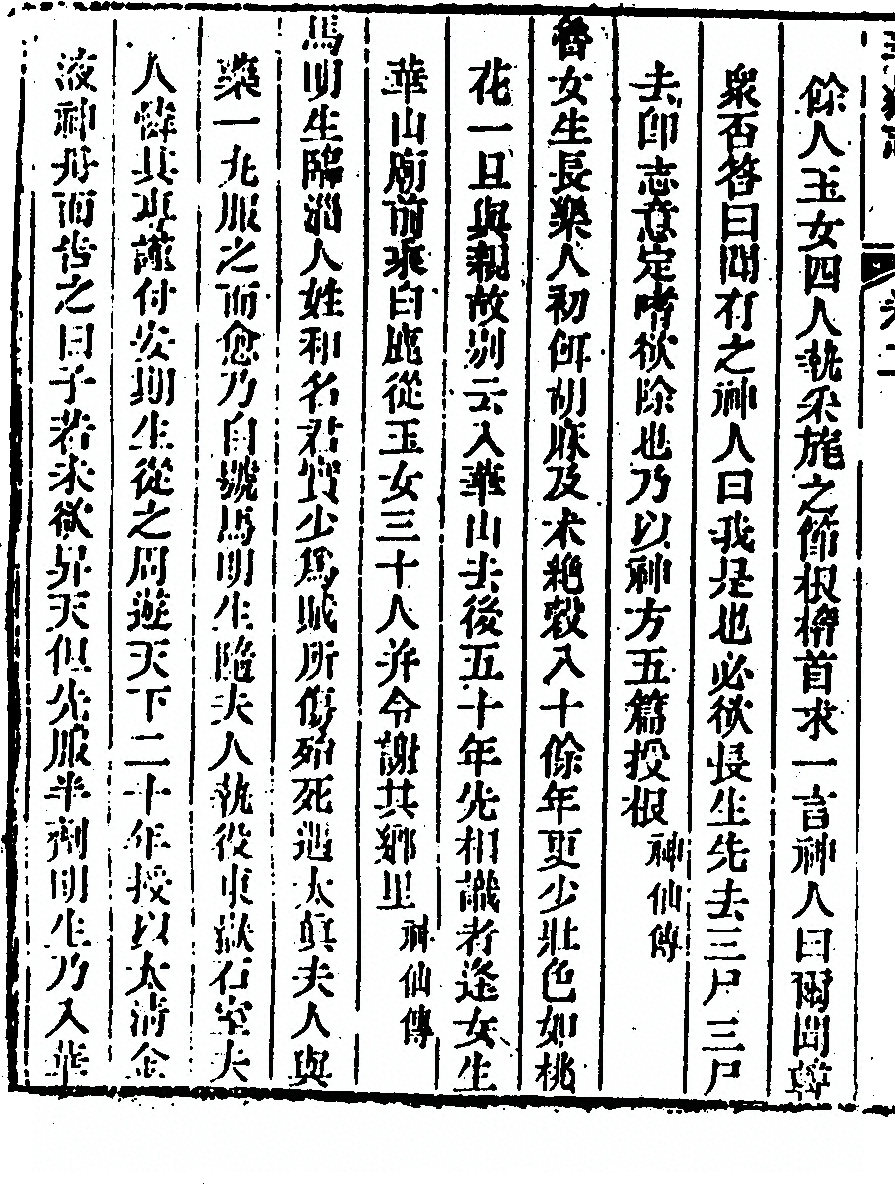 餘人玉女四人執采旄之節根稽首求一言神人曰爾聞韓
衆否答曰聞有之神人曰我是也必欲長生先去三尸三尸
去卽志意定嗜欲除也乃以神方五篇授根神仙傳
魯女生長樂人初餌胡麻及术絶穀八十餘年更少壯色如桃
花一旦與親故別云入華山去後五十年先相識者逢女生
華山廟前乘白鹿從玉女三十人并令謝其鄉里神仙傳
馬明生臨淄人姓和名君寳少爲賊所傷殆死遇太眞夫人與
藥一丸服之而愈乃自號馬明生隨夫人執役東嶽石室夫
人憐其專謹付安期生從之周遊天下二十年授以太淸金
液神丹而告之曰子若未欲昇天但先服半劑明生乃入華
卷二